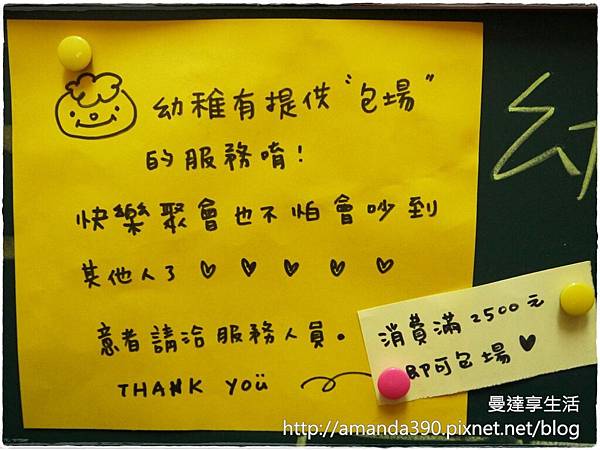 幼稚有提供“包場”
的服務唷!
快樂聚會也不怕會吵到
其他人了 ♥ ♥ ♥ ♥ ♥
意者請洽服務人員。
THANK YOU
消費滿2500元
即可包場♥
幼
曼達享生活
http://amanda390.pixnet.net/blog